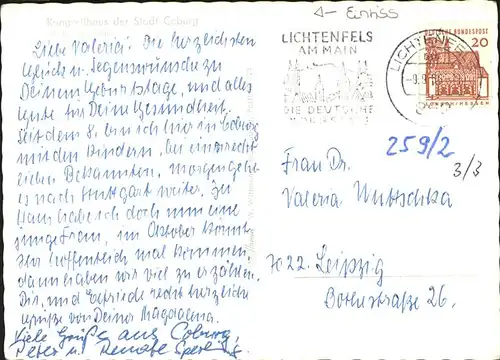 Kongreßhaus der Stadt Coburg
Einriss
Liebe Valeria! Die herzlichsten
Glück u. Segenswünsche zu
Deinem Geburtstage, und alles
Gute für Deine Gesundheit.
Seit dem 8. bin ich hier in Coburg
mit den Kindern, bei
lieben Bekannten, morgen geht
es nach Stuttgart weiter, zu
Haus habe ich doch nun eine
junge Frau, im Oktober kommt
Ihr hoffentlich mal kommen,
dann haben wir viel zu erzählen.
Dir, und Elfriede recht herzliche
Grüße von Deiner Magdalena.
Viele Grüße aus Coburg,
Peter u. Renate
LICHTENFELS
AM MAIN
DIE DEUTSCHE
KORBSTADT
LICHTENFELS
DEUTSCHE BUNDESPOST
20
259/2
3/3
Frau Dr.
Valeria Wutschka
7022 Leipzig
Bothestraße 26.